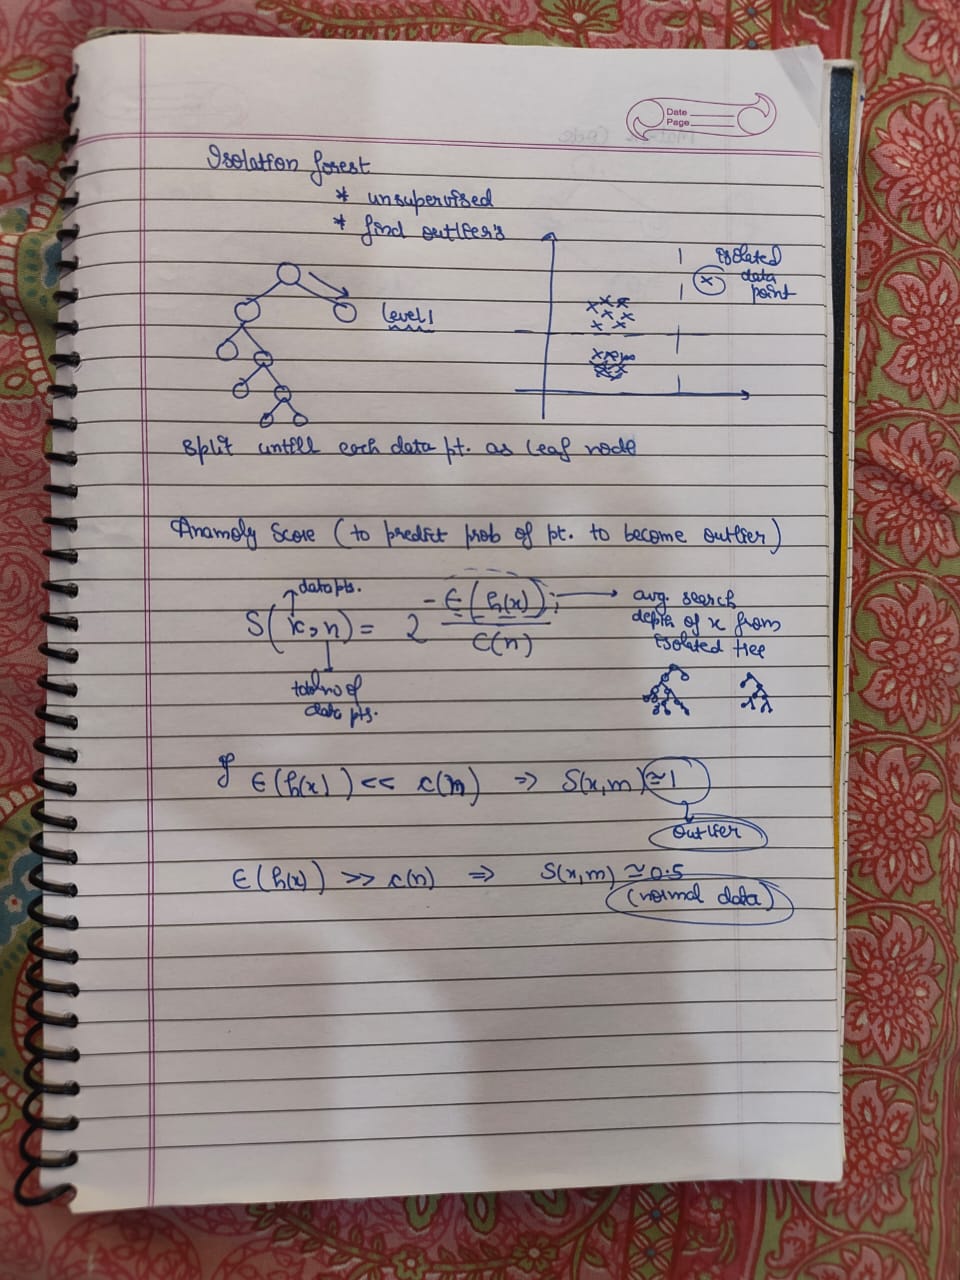 Date
Page
Isolation forest
* unsupervised
* find outlier's
isolated
data
point
Level 1
Split untill each data pt. as leaf node
Anamoly Score (to predict prob of pt. to become outlier)
data pts.
S(x, n) = 2^(-E(h(x)) / C(n))
avg. search
depth of x from
isolated tree
total no of
data pts.
If E(h(x)) << c(m) ⇒ S(x,m) ≃ 1
outlier
E(h(x)) >> c(n) ⇒ S(x,m) ≃ 0.5
(normal data)